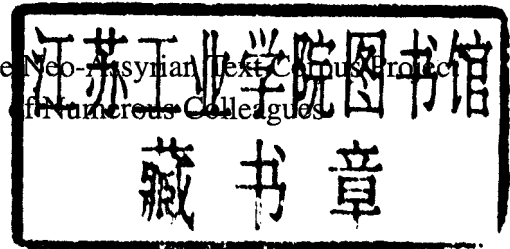 江苏工业学院图书馆
e Neo-Assyrian Text Corpus Project
of Numerous Colleagues
藏书章